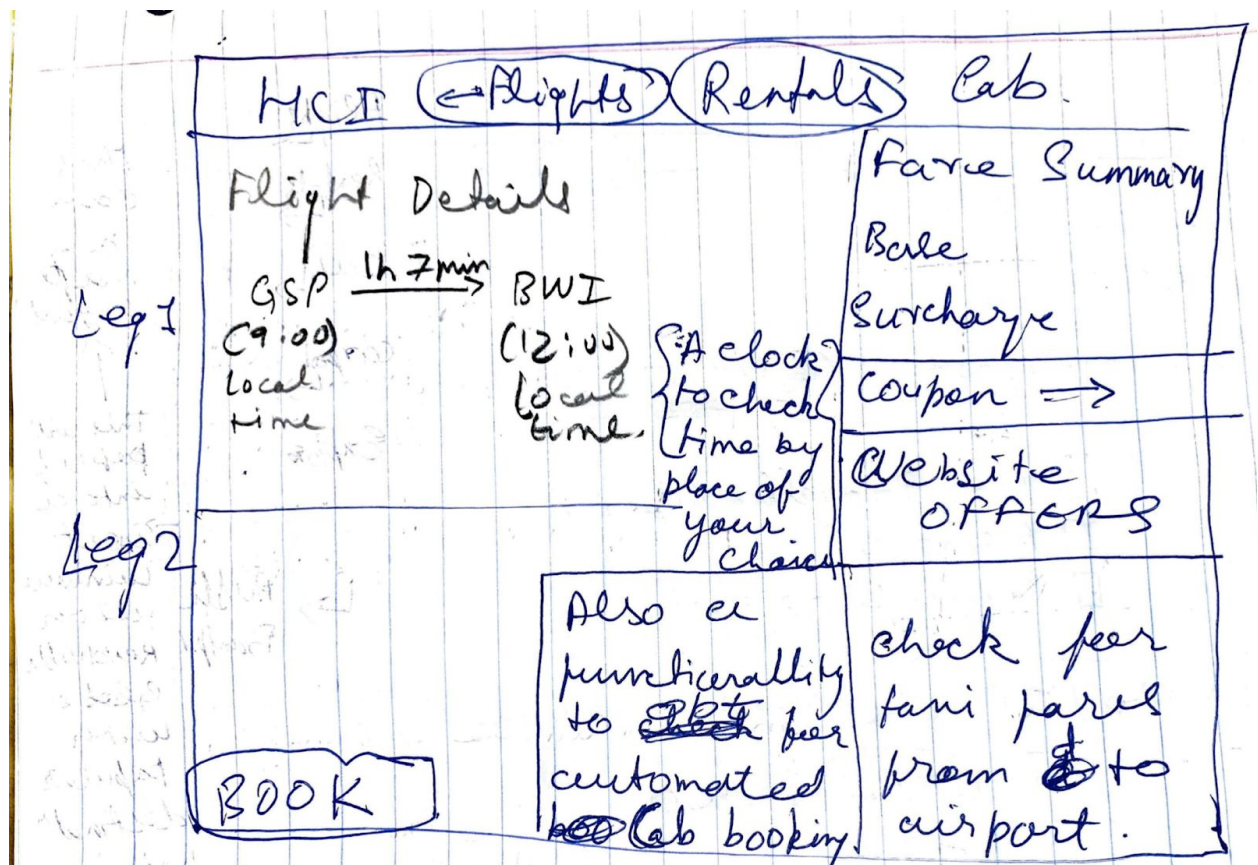 HCI Flights Rentals Cab.
Flight Details
Leg 1
GSP 1h 7min BWI
(9:00) (12:00)
Local Local
time time.
{A clock
to check
time by
place of
your
choice
Fare Summary
Base
Surcharge
Coupon ⇒
Website
OFFERS
Leg 2
BOOK
Also a
functionallity
to opt for
automated
Cab booking.
check for
taxi fares
from & to
airport.